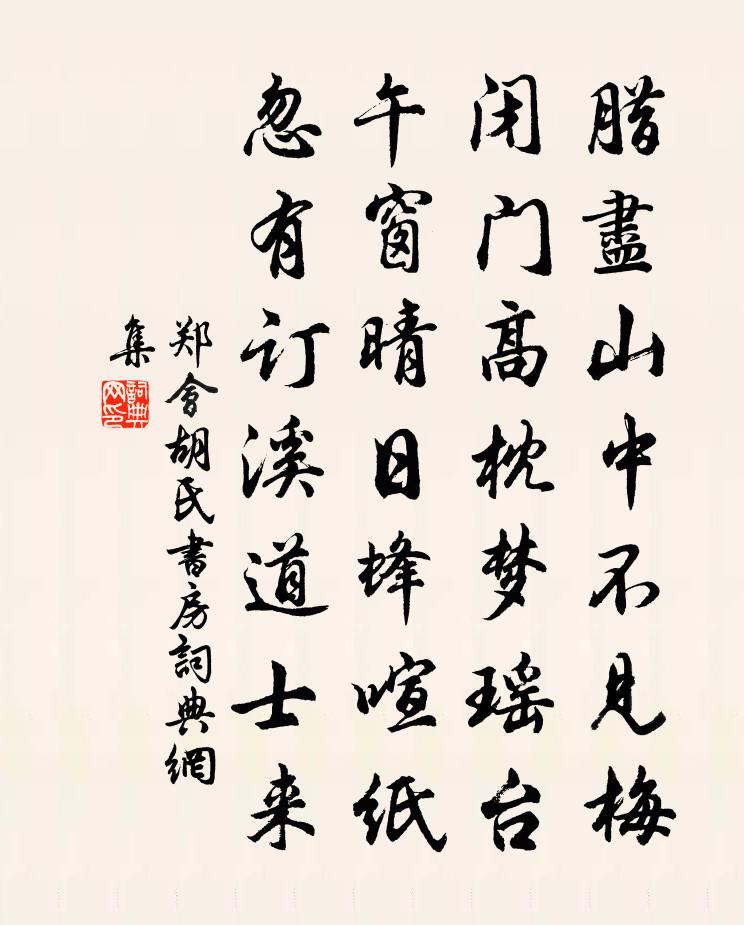 腊盡山中不见梅
闭门高枕梦瑶台
午窗晴日蜂喧纸
忽有订溪道士来
郑會胡氏書房詞典網
集
詞典
网印